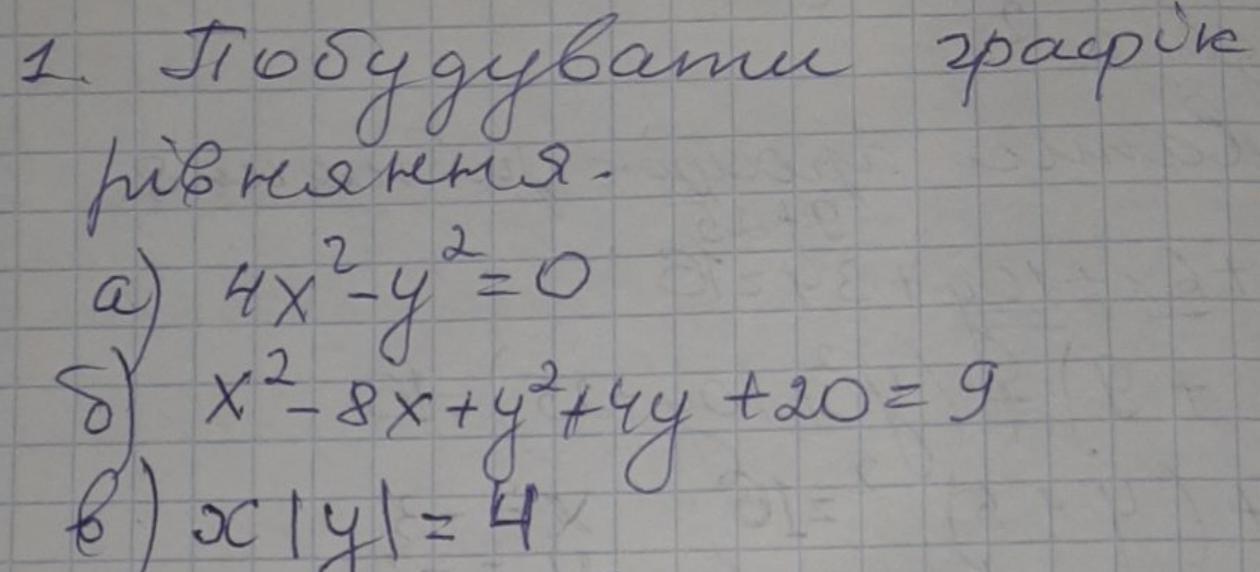 1. Побудувати графік
рівняння.
а) 4x² - y² = 0
б) x² - 8x + y² + 4y + 20 = 9
в) x |y| = 4